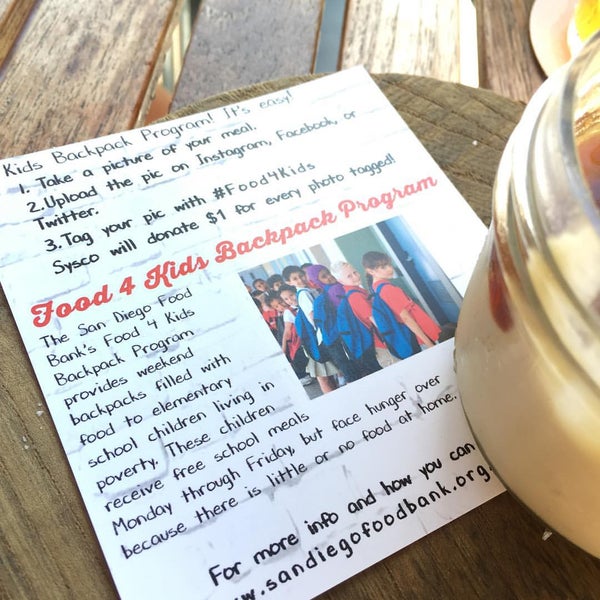 Kids Backpack Program! It's easy!
1. Take a picture of your meal.
2. Upload the pic on Instagram, Facebook, or
Twitter.
3. Tag your pic with #Food4Kids
Sysco will donate $1 for every photo tagged!
Food 4 Kids Backpack Program
The San Diego Food
Bank's Food 4 Kids
Backpack Program
provides weekend
backpacks filled with
food to elementary
school children living in
poverty. These children
receive free school meals
Monday through Friday, but face hunger over
because there is little or no food at home.
For more info and how you can
w.sandiegofoodbank.org.